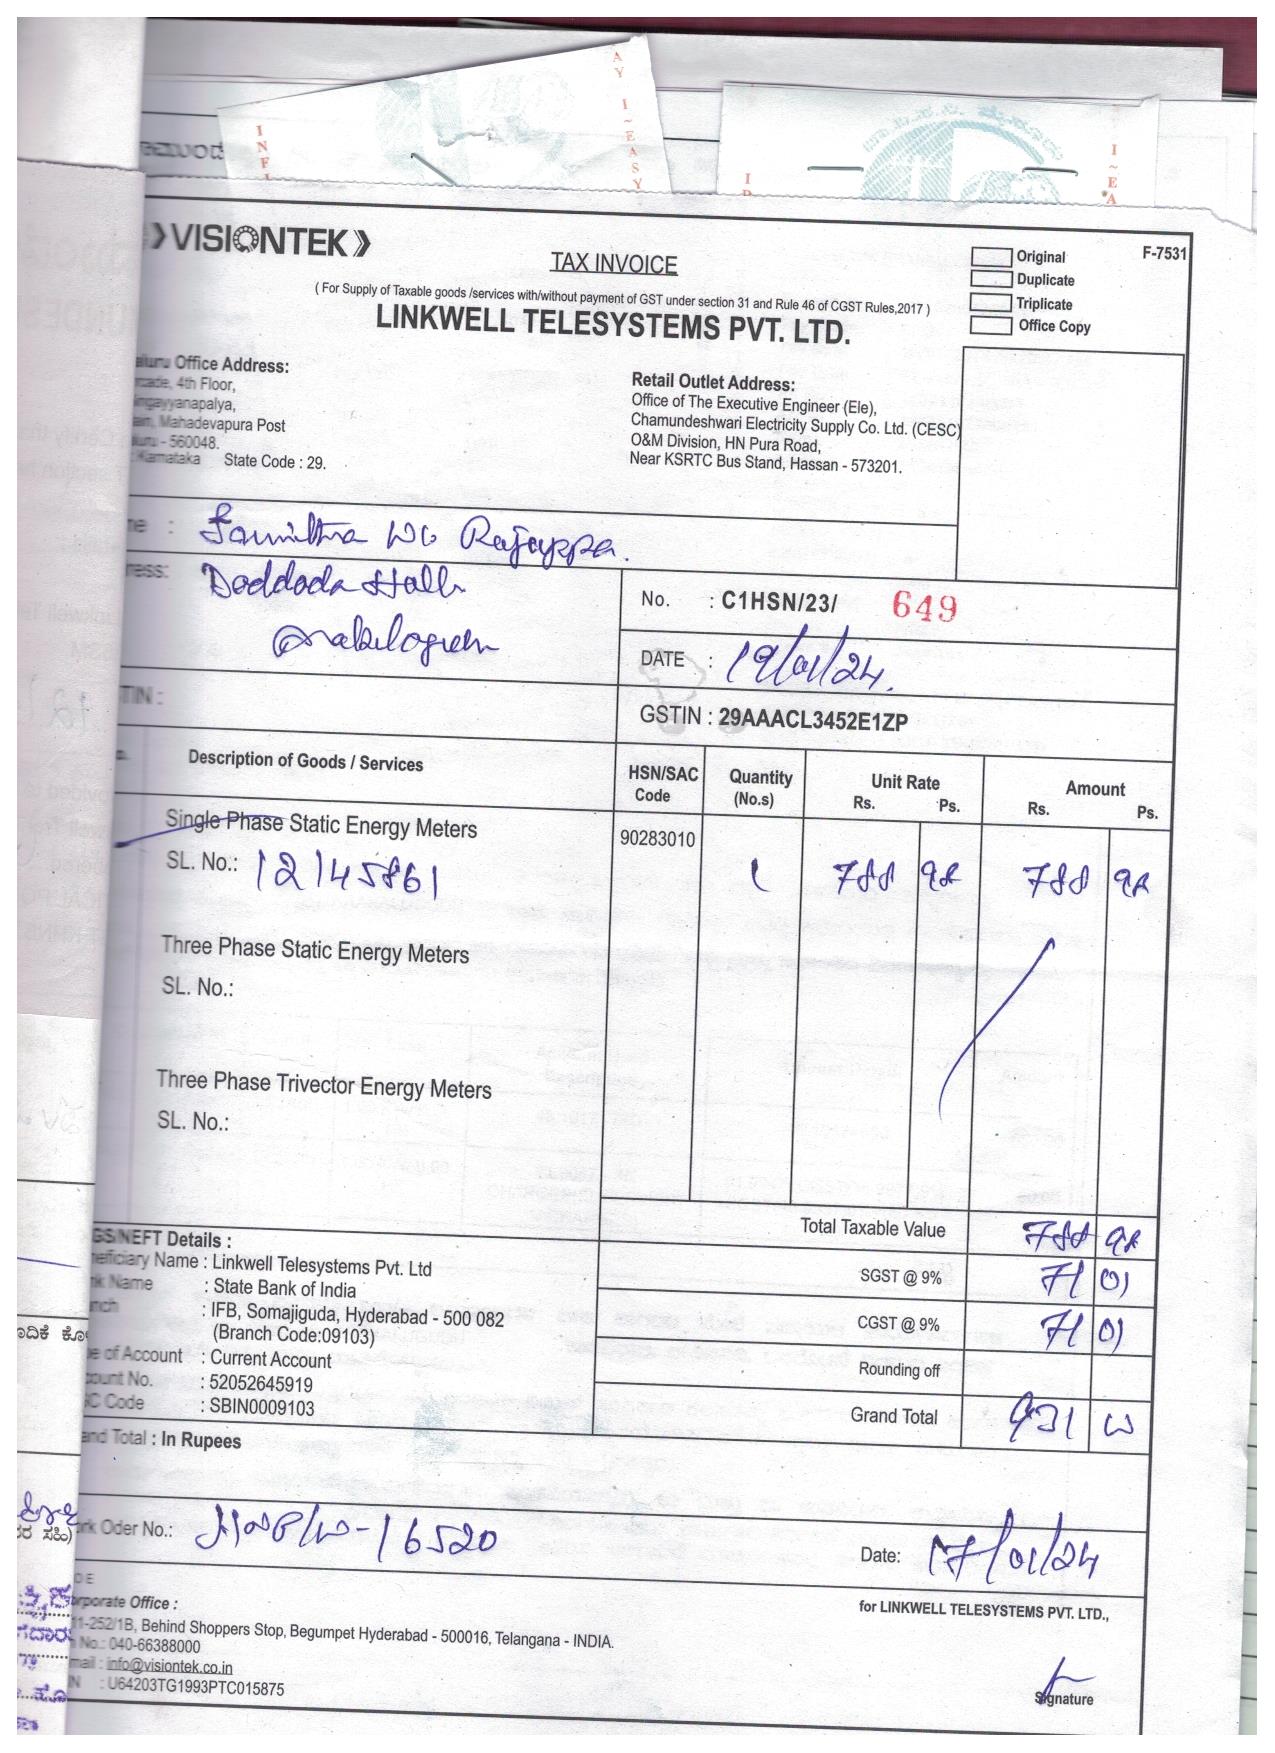 VISIONTEK
TAX INVOICE
Original
Duplicate
Triplicate
Office Copy
F-7531
( For Supply of Taxable goods /services with/without payment of GST under section 31 and Rule 46 of CGST Rules,2017 )
LINKWELL TELESYSTEMS PVT. LTD.
Office Address:
4th Floor,
Mahadevapura Post
- 560048.
Karnataka State Code : 29.
Retail Outlet Address:
Office of The Executive Engineer (Ele),
Chamundeshwari Electricity Supply Co. Ltd. (CESC)
O&M Division, HN Pura Road,
Near KSRTC Bus Stand, Hassan - 573201.
: Rajappa.
No. : C1HSN/23/ 649
DATE : 19/01/24.
GSTIN : 29AAACL3452E1ZP
Description of Goods / Services
HSN/SAC Code
Quantity (No.s)
Unit Rate Rs. Ps.
Amount Rs. Ps.
Single Phase Static Energy Meters 90283010
SL. No.: 12145861 1 788 98 788 98
Three Phase Static Energy Meters
SL. No.:
Three Phase Trivector Energy Meters
SL. No.:
Total Taxable Value 788 98
SGST @ 9% 71 01
CGST @ 9% 71 01
Rounding off
Grand Total 931 00
NEFT Details :
Name : Linkwell Telesystems Pvt. Ltd
Name : State Bank of India
: IFB, Somajiguda, Hyderabad - 500 082
(Branch Code:09103)
of Account : Current Account
No. : 52052645919
Code : SBIN0009103
Total : In Rupees
Oder No.: 16520
Date: 17/01/24
for LINKWELL TELESYSTEMS PVT. LTD.,
Office :
11-252/1B, Behind Shoppers Stop, Begumpet Hyderabad - 500016, Telangana - INDIA.
No.: 040-66388000
: info@visiontek.co.in
: U64203TG1993PTC015875
Signature